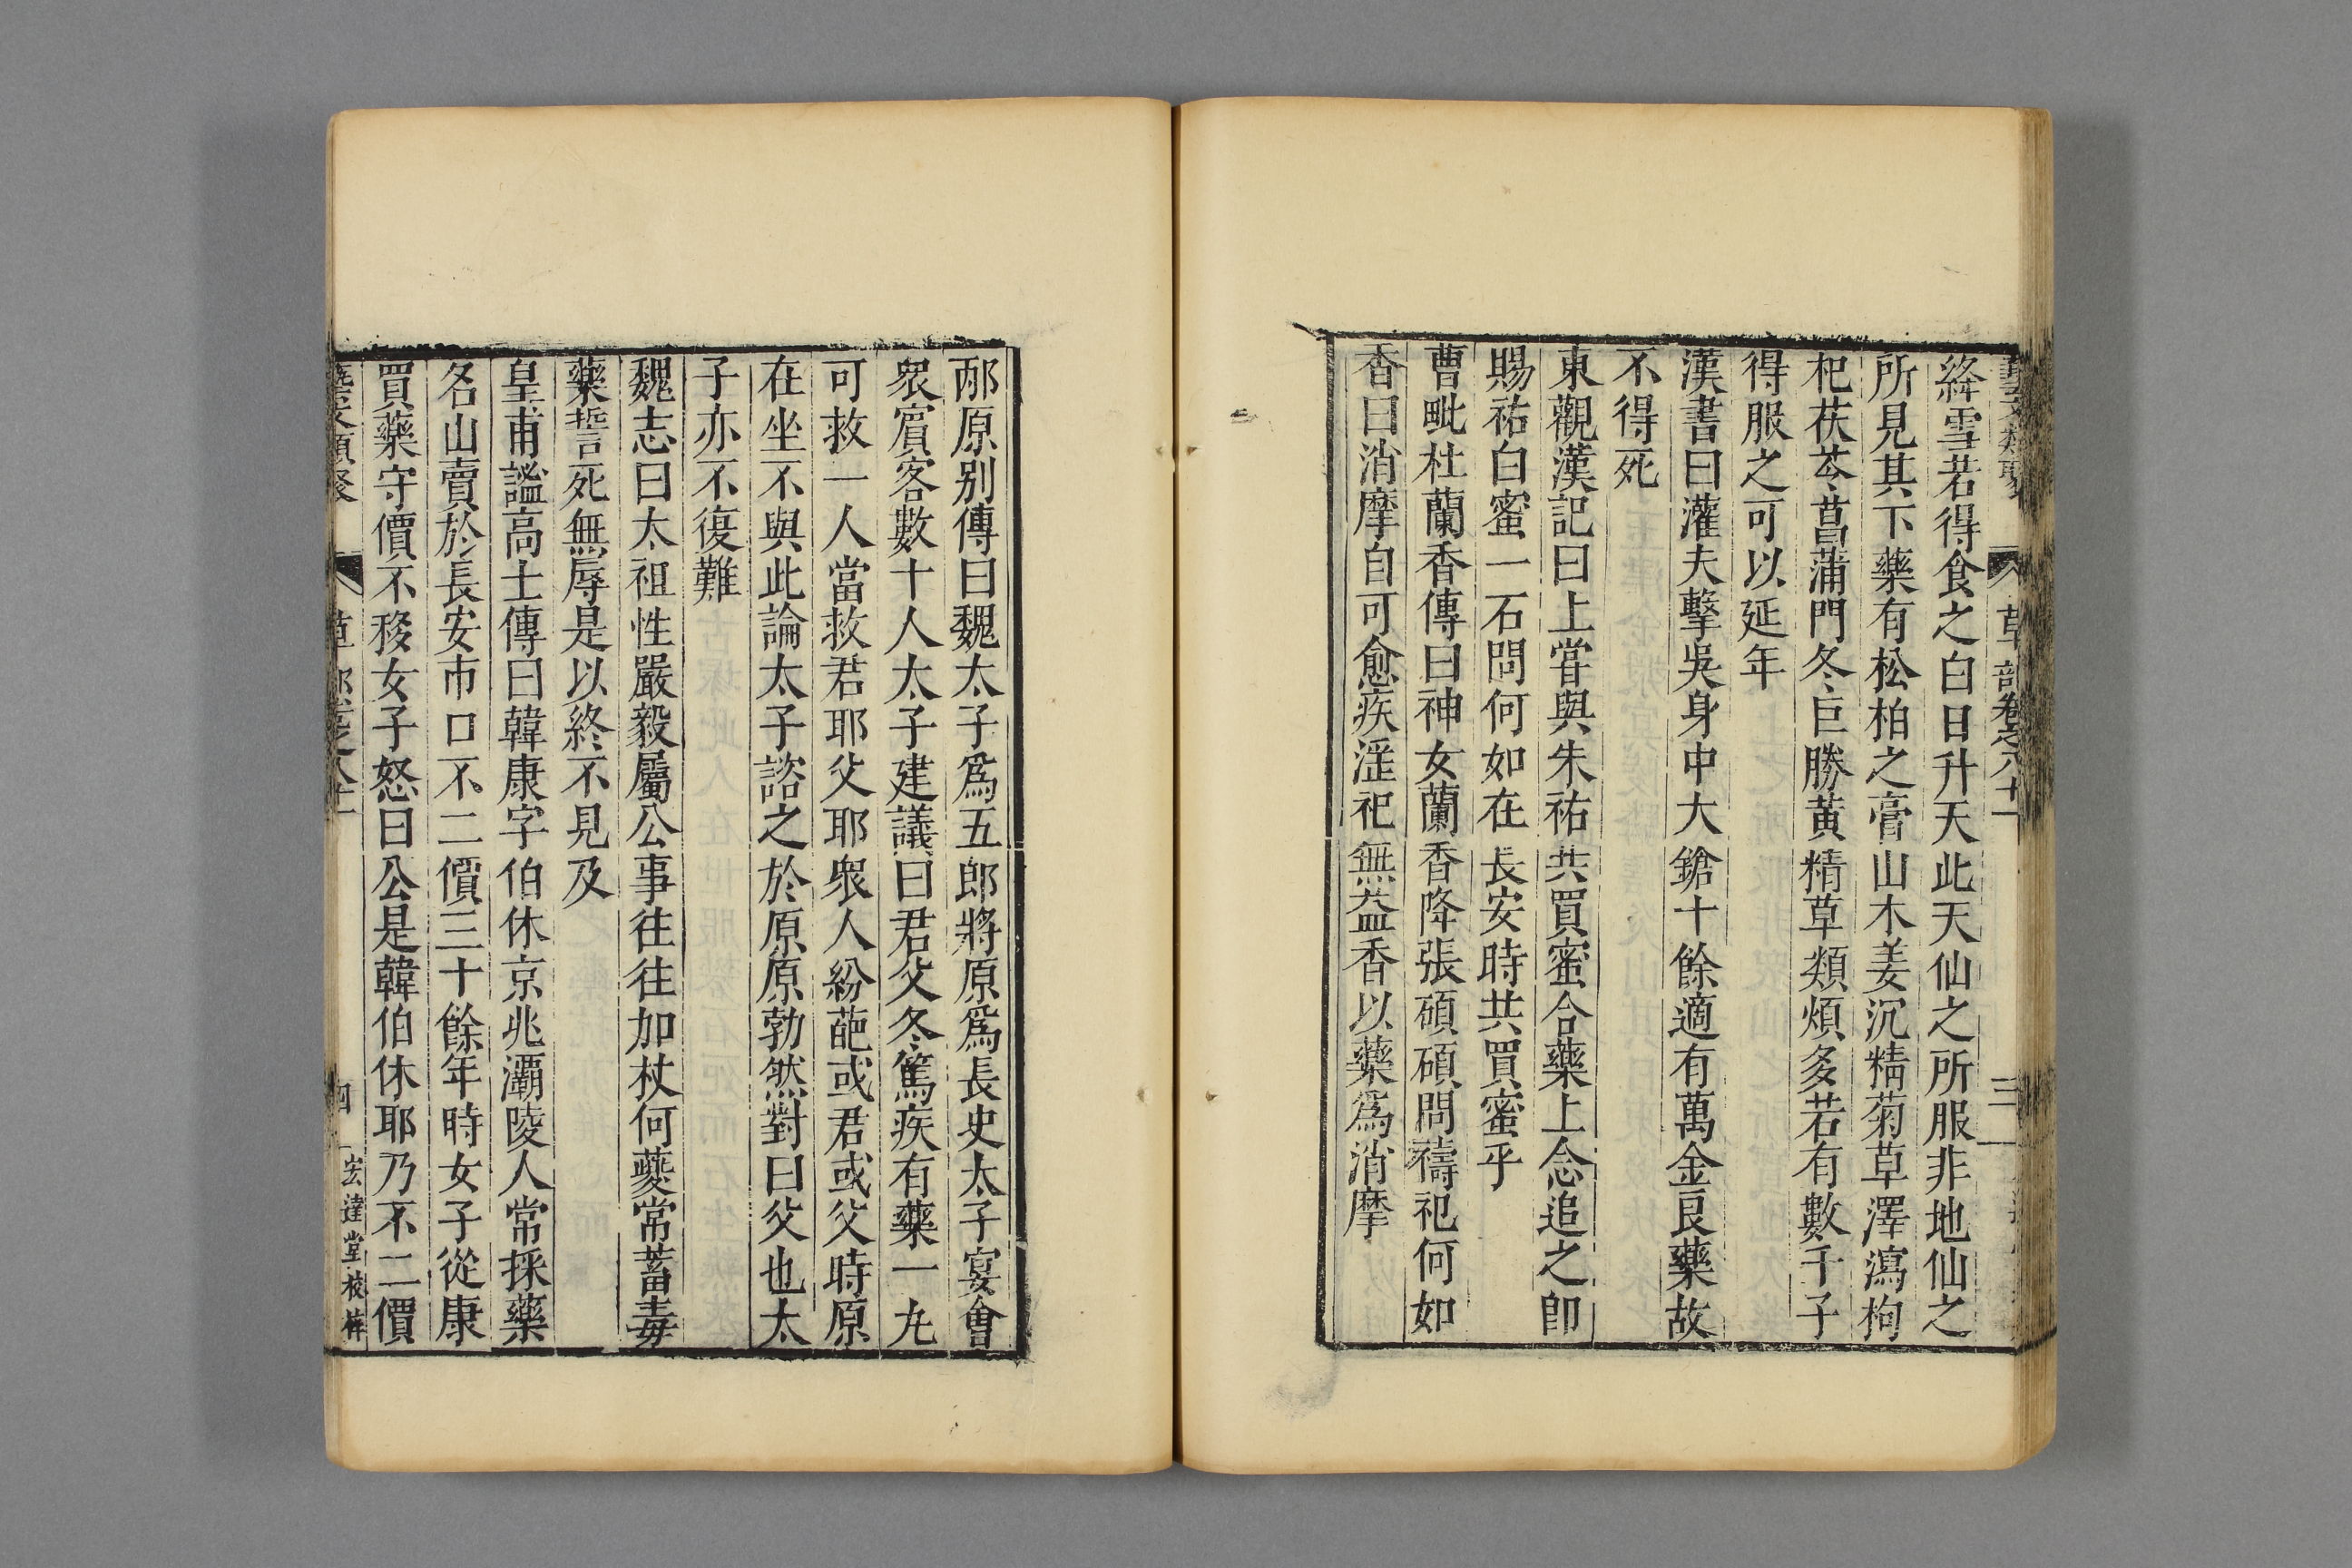 藝文類聚 草部卷之八十一 三
絳雪若得食之白日升天此天仙之所服非地仙之
所見其下藥有松柏之膏山木姜沉精菊草澤瀉枸
杞茯苓菖蒲門冬巨勝黃精草類煩多若有數千子
得服之可以延年
漢書曰灌夫擊吳身中大鎗十餘適有萬金良藥故
不得死
東觀漢記曰上嘗與朱祐共買蜜合藥上念追之即
賜祐白蜜一石問何如在長安時共買蜜乎
曹毗杜蘭香傳曰神女蘭香降張碩碩問禱祀何如
香曰消摩自可愈疾淫祀無益香以藥爲消摩
邴原別傳曰魏太子爲五郎將原爲長史太子宴會
衆賓客數十人太子建議曰君父冬篤疾有藥一丸
可救一人當救君耶父耶衆人紛葩或君或父時原
在坐不與此論太子諮之於原原勃然對曰父也太
子亦不復難
魏志曰太祖性嚴毅屬公事往往加杖何夔常蓄毒
藥誓死無辱是以終不見及
皇甫謐高士傳曰韓康字伯休京兆灞陵人常採藥
名山賣於長安市口不二價三十餘年時女子從康
買藥守價不移女子怒曰公是韓伯休耶乃不二價
藝文類聚 草部卷之八十一 四 宏達堂校梓